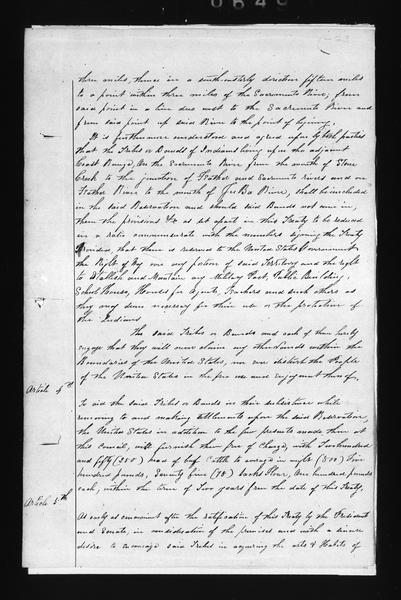 three miles, thence in a southwesterly direction fifteen miles
to a point within three miles of the Sacramento River, from
said point in a line due west to the Sacramento River and
from said point up said River to the point of beginning.
It is furthermore understood and agreed upon by both parties
that the Tribes or Bands of Indians living upon the adjacent
Coast Range, on the Sacramento River from the mouth of Stone
Creek to the junction of Feather and Sacramento rivers and on
Feather River to the mouth of Yuba River, shall be included
in the said Reservation and should said Bands not come in,
then the provisions &c as set apart in this Treaty to be reduced
in a ratio commensurate with the numbers signing the Treaty
Provided, that there is reserved to the United States Government
the Right of Way over any portion of said Territory and the right
to Establish and Maintain any Military Post, Public Building,
School Houses, Houses for Agents, Teachers and such others as
they may deem necessary for their use or the protection of
the Indians.
The said Tribes or Bands and each of them hereby
engage that they will never claim any other lands within the
Boundaries of the United States, nor ever disturb the People
of the United States in the free use and enjoyment thereof.
Article 4th
To aid the said Tribes or Bands in their subsistence while
removing to and making settlements upon the said Reservation
the United States in addition to the few presents made them at
this Council, will furnish them free of Charge, with Two hundred
and fifty (250) head of beef Cattle to average in weight (500) five
hundred pounds, Seventy five (75) Sacks Flour, One hundred pounds
each, within the term of Two years from the date of this Treaty.
Article 5th
As early as convenient after the ratification of this Treaty by the President
and Senate, in consideration of the premises and with a sincere
desire to encourage said Tribes in acquiring the arts & Habits of